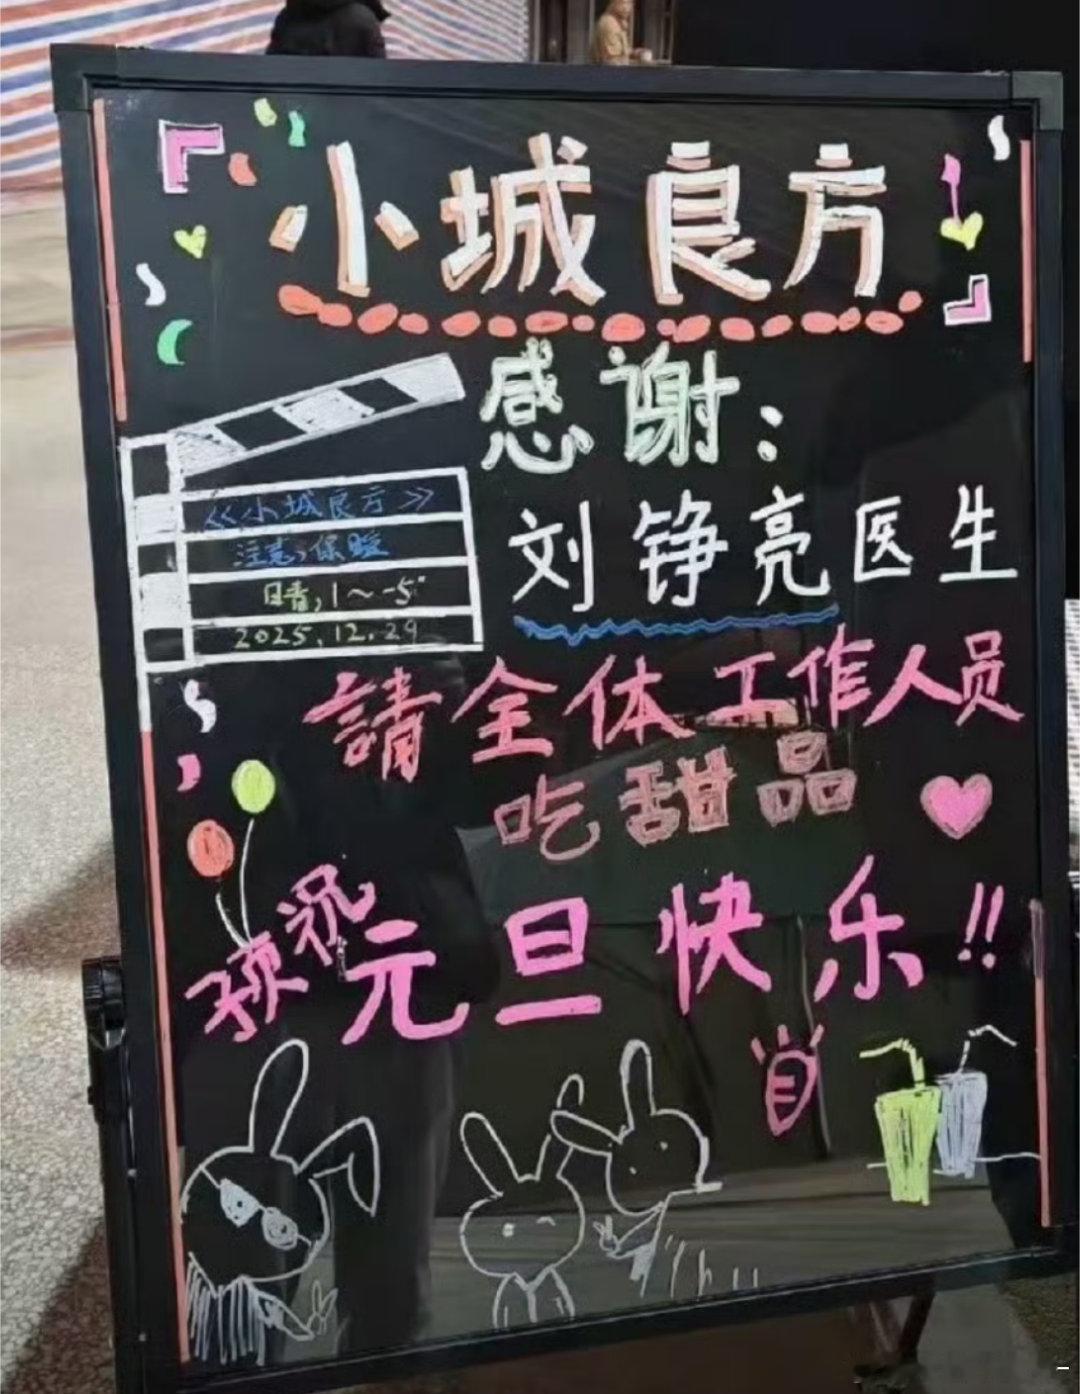 小城良方
感谢：
刘铮亮医生
《小城良方》
注意，保暖
1～-5°
2025.12.29
請全体工作人员
吃甜品
预祝
元旦快乐!!